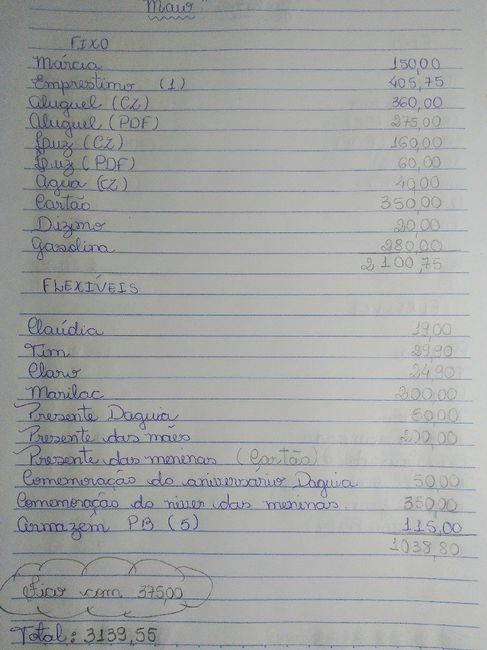 Maio
FIXO
Márcia 150,00
Emprestimo (1) 405,75
Aluguel (CZ) 360,00
Aluguel (PDF) 275,00
Luz (CZ) 160,00
Luz (PDF) 60,00
Água (CZ) 40,00
Cartão 350,00
Dizimo 20,00
Gasolina 280,00
2100,75
FLEXÍVEIS
Claúdia 19,00
Tim 29,90
Claro 24,90
Marilac 200,00
Presente Daguia 50,00
Presente das mães 200,00
Presente das meninas (Cartão)
Comemoração do aniversário Daguia 50,00
Comemoração do niver das meninas 350,00
Armazém PB (5) 115,00
1038,80
Ficar com 375,00
Total: 3139,55